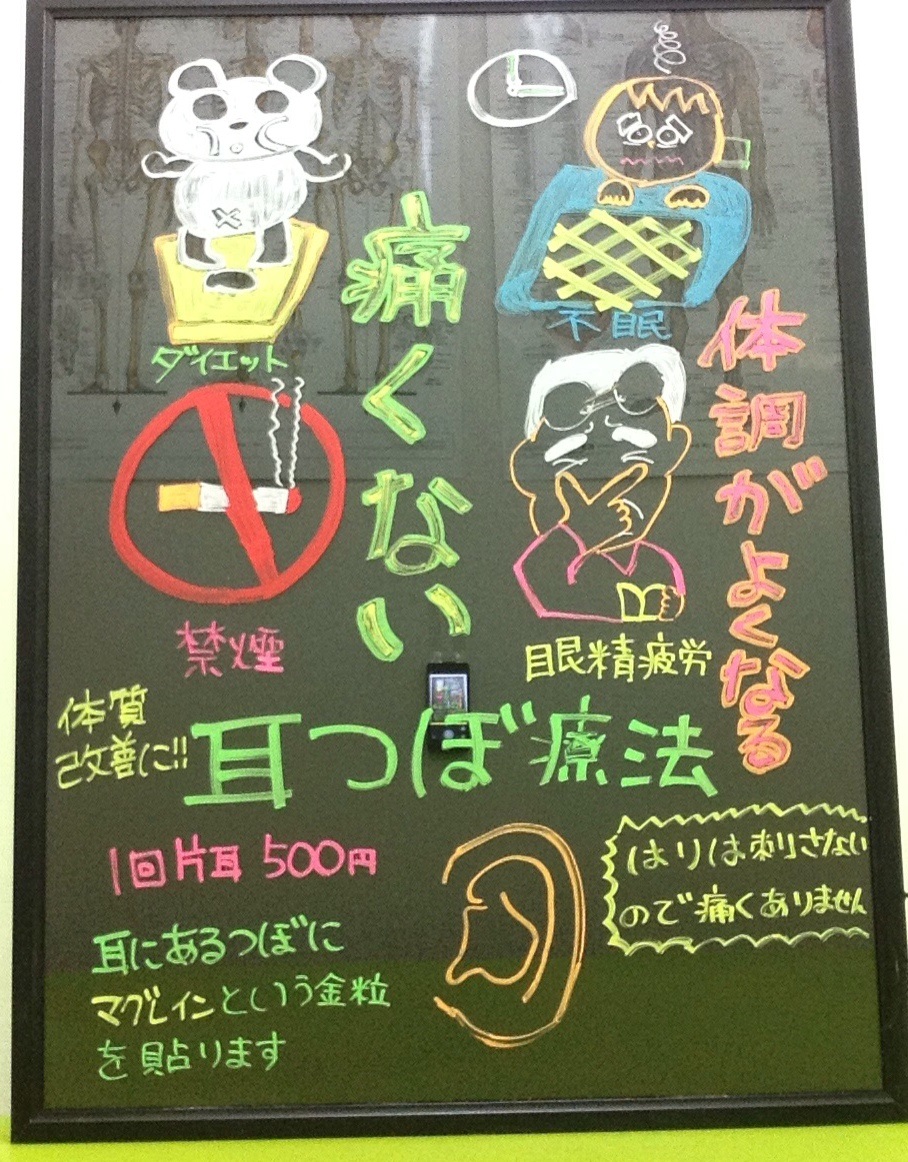 痛くない
体調がよくなる
ダイエット
不眠
禁煙
眼精疲労
体質
改善に!!
耳つぼ療法
1回片耳 500円
はりは刺さない
ので痛くありません
耳にあるつぼに
マグレインという金粒
を貼ります